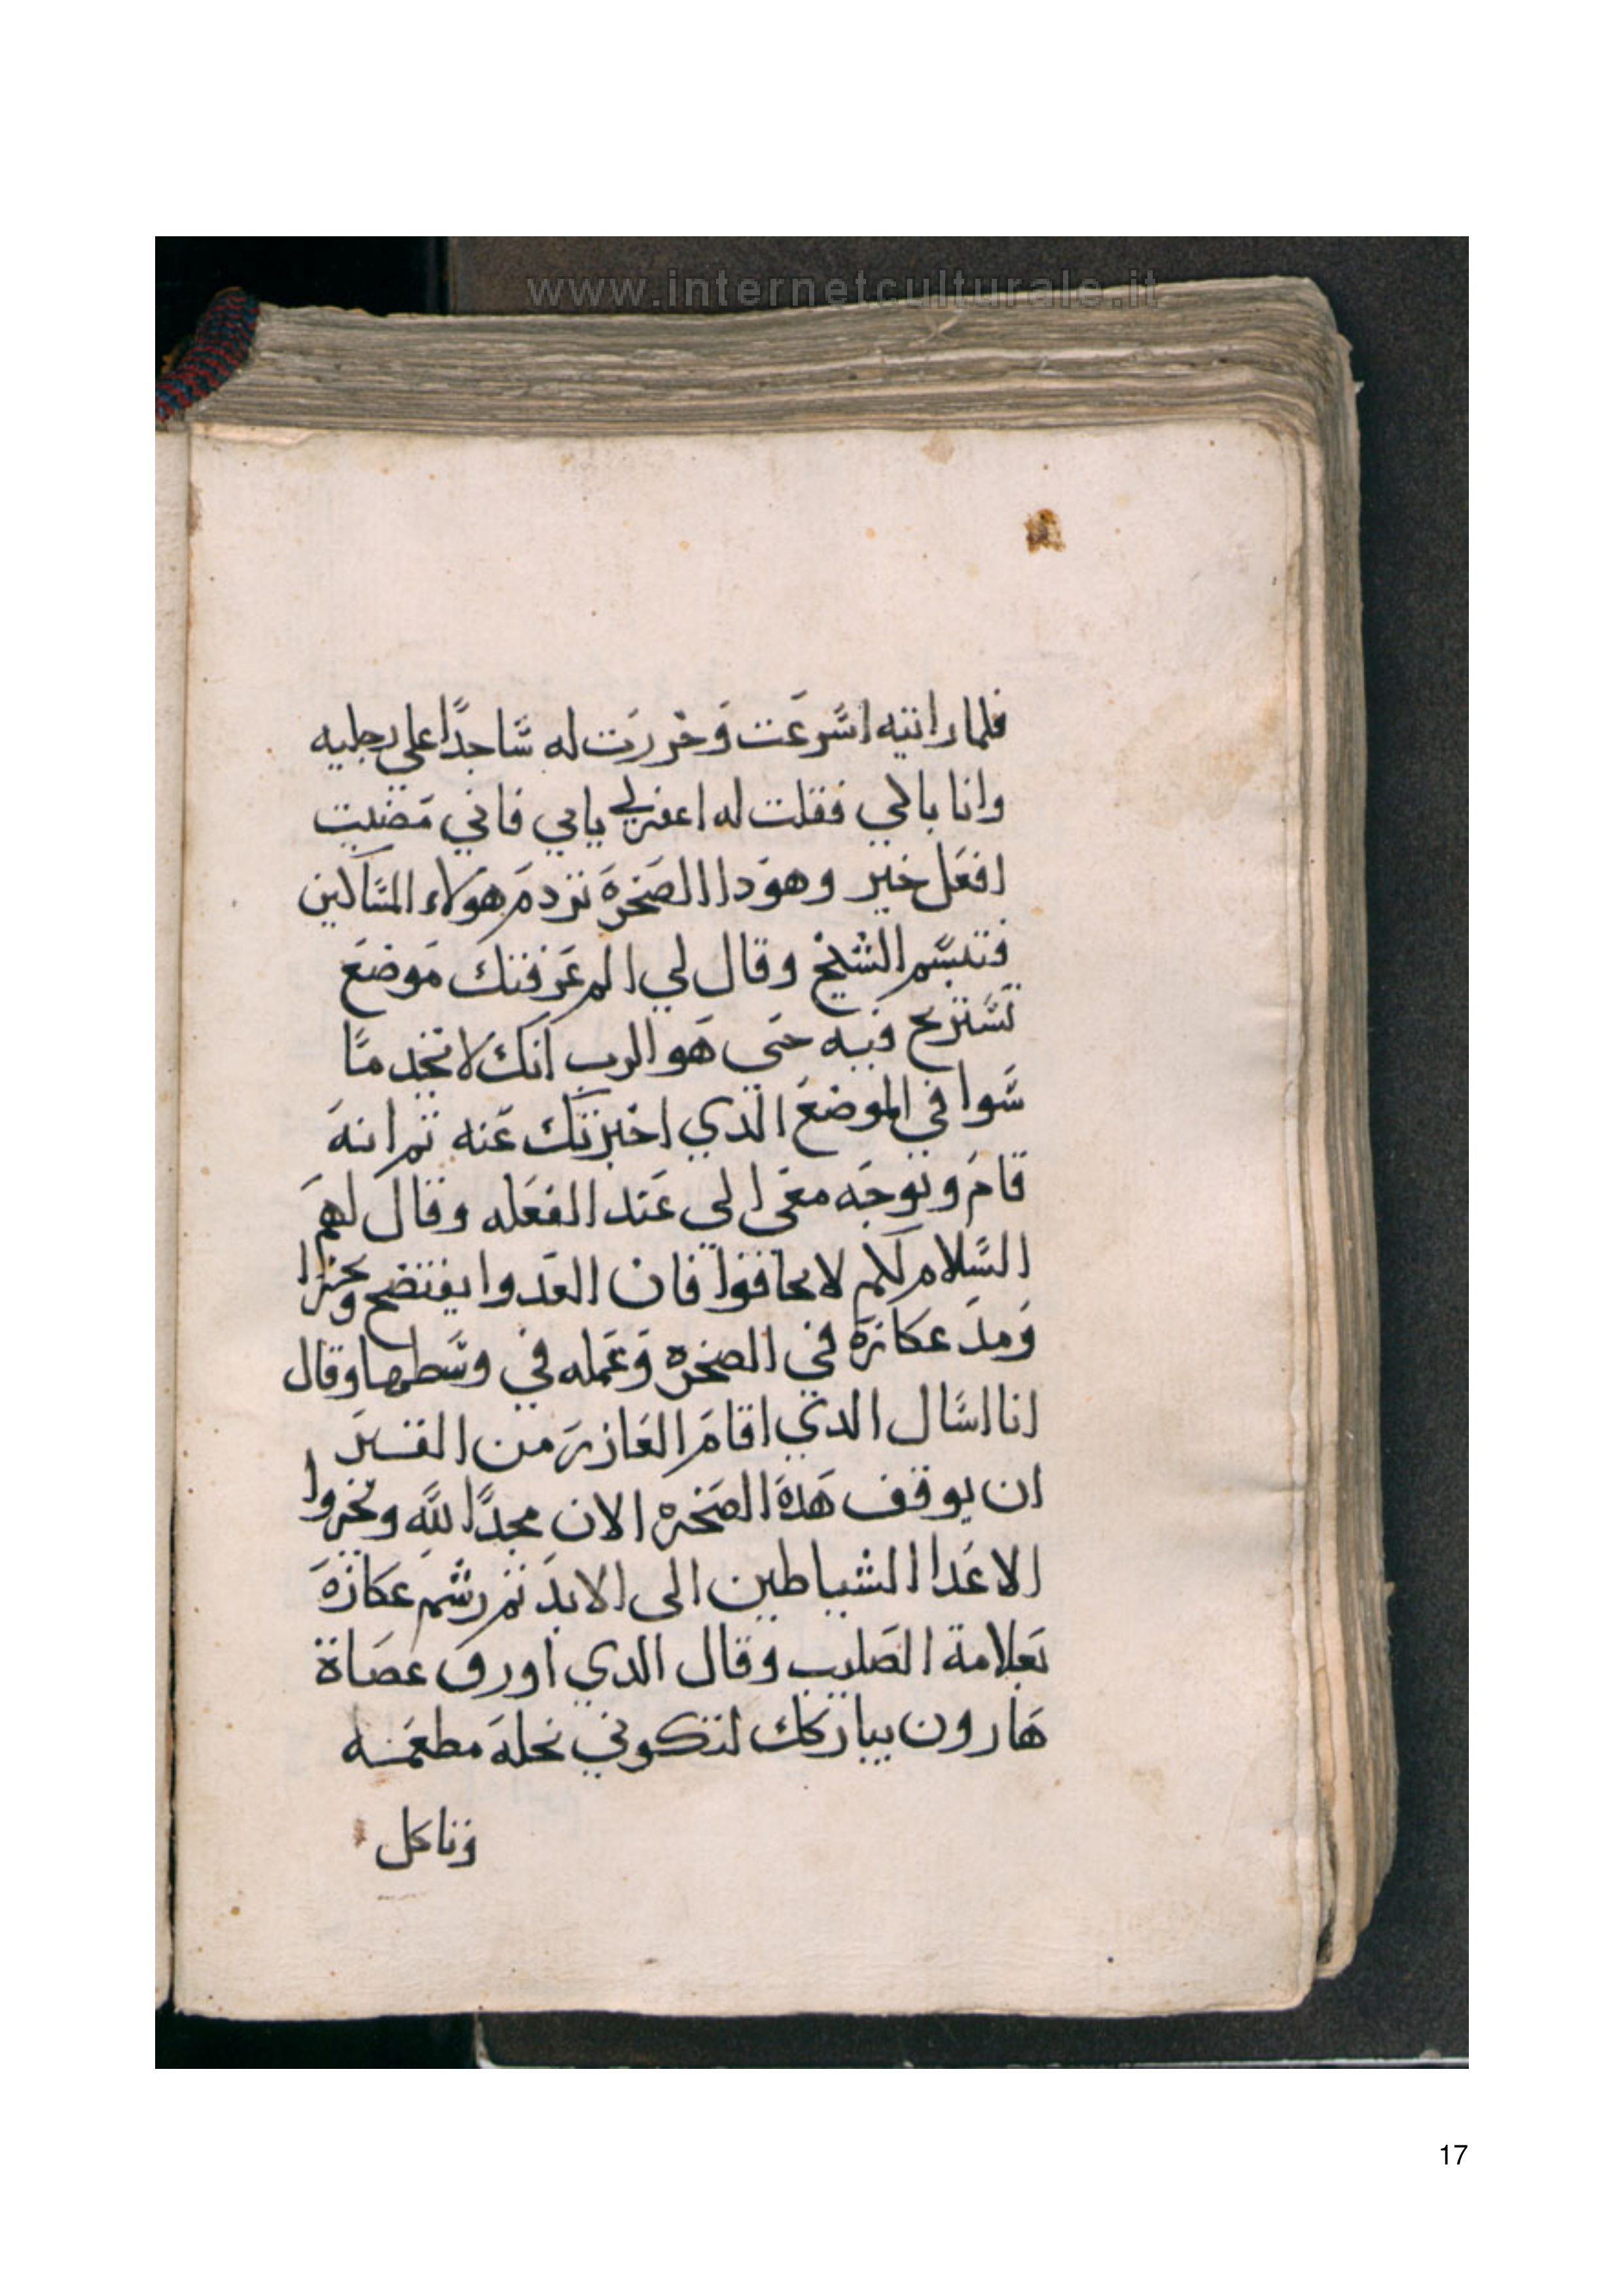 www.internetculturale.it
فلما رانتيه اسرعت وخررت له ساجدًا على رجليه
وانا باكي فقلت له اغفرلي يابي فاني مضيت
افعل خير وهودا الصخرة تردم هولاء المساكين
فتبسم الشيخ وقال لي الم عرفتك موضع
تستريح فيه حتى هو الرب انك لا تخدمنا
سوا في الموضع الدي اخبرتك عنه ثم انه
قام وتوجه معى الي عند الفعله وقال لهم
السلام لكم لا تخافوا فان العدوا يفتضح ويخزا
ومد عكازة في الصخرة وعمله في وسطها وقال
انا اسال الدي اقام العازر من القبر
ان يوقف هده الصخره الان مجدًا لله وتخزوا
الاعدا الشياطين الى الابد ثم رشم عكازة
بعلامة الصليب وقال الدي اورق عصاة
هارون يباركك لتكوني نخلة مطعمه
وناكل
17